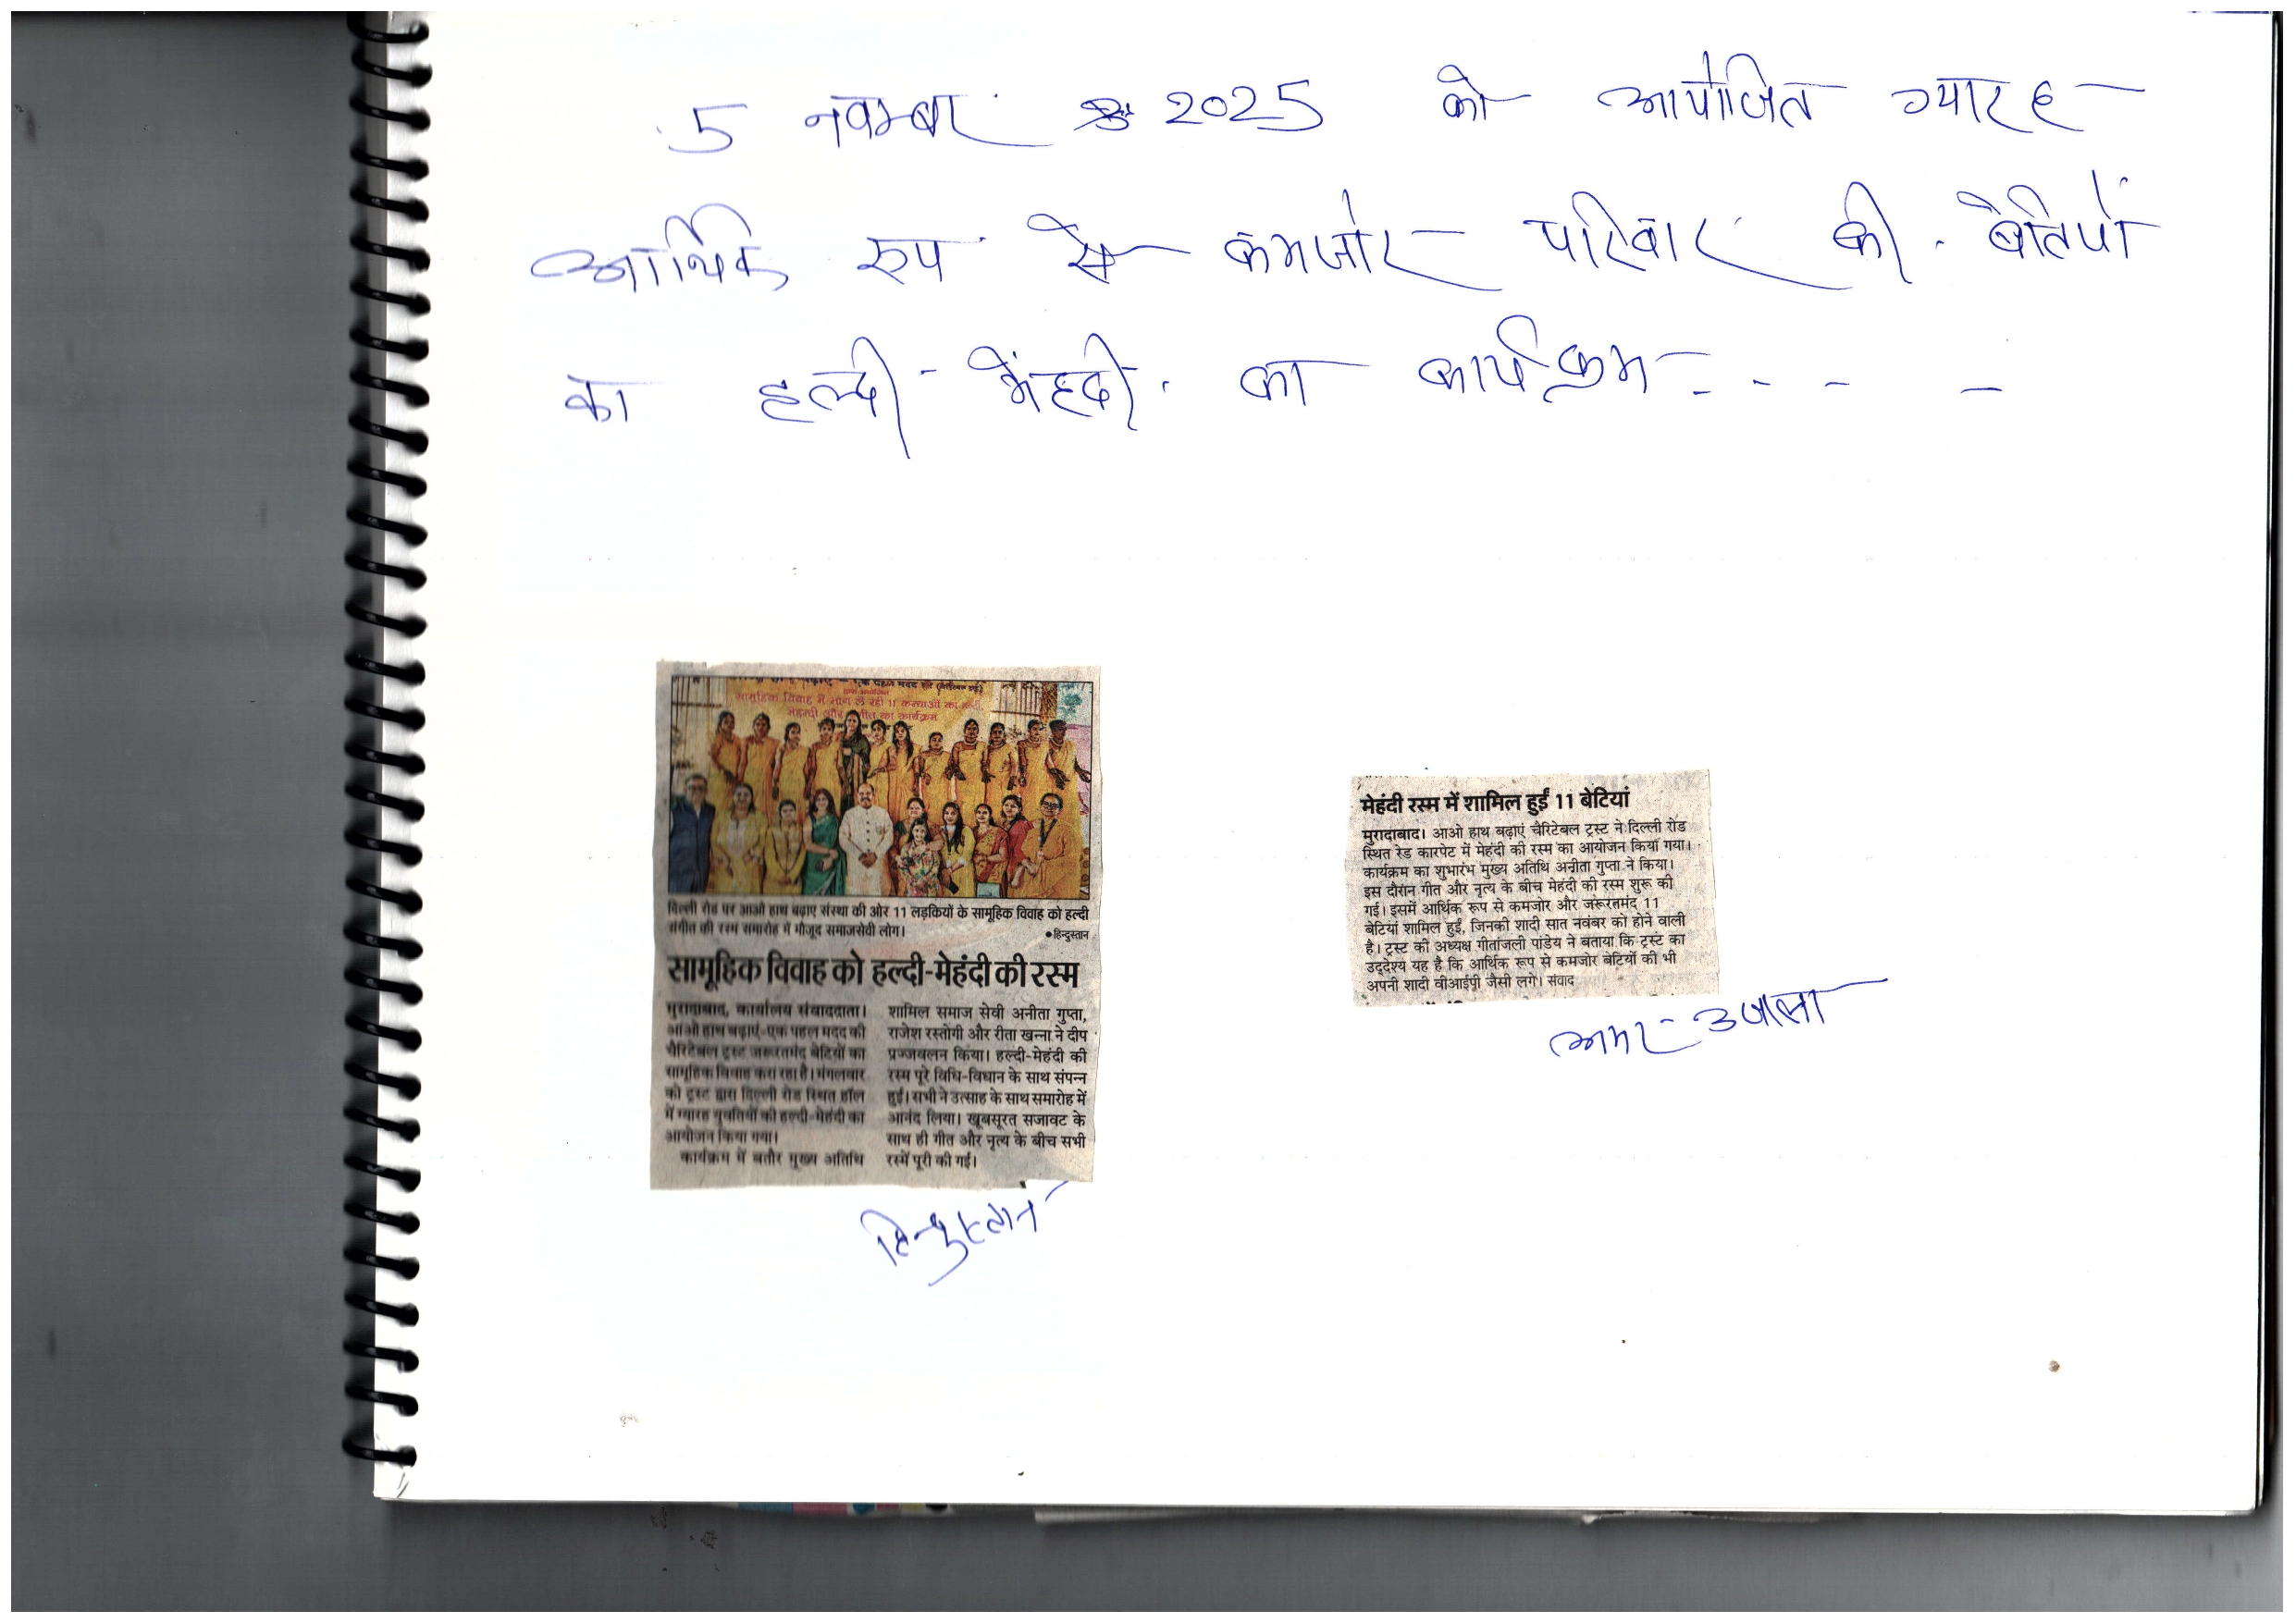 5 नवम्बर 2025 को आयोजित ग्यारह
आर्थिक रूप से कमजोर परिवार की बेटियों
का हल्दी - मेंहदी का कार्यक्रम - - - -
सामूहिक विवाह में भाग ले रही 11 कन्याओं का हल्दी,
मेहन्दी और गीत का कार्यक्रम
दिल्ली रोड पर आओ हाथ बढ़ाए संस्था की ओर 11 लड़कियों के सामूहिक विवाह को हल्दी
संगीत की रस्म समारोह में मौजूद समाजसेवी लोग।
• हिन्दुस्तान
सामूहिक विवाह को हल्दी-मेहंदी की रस्म
मुरादाबाद, कार्यालय संवाददाता।
आओ हाथ बढ़ाएं-एक पहल मदद की
चैरिटेबल ट्रस्ट जरूरतमंद बेटियों का
सामूहिक विवाह करा रहा है। मंगलवार
को ट्रस्ट द्वारा दिल्ली रोड स्थित हॉल
में ग्यारह युवतियों की हल्दी-मेहंदी का
आयोजन किया गया।
कार्यक्रम में बतौर मुख्य अतिथि
शामिल समाज सेवी अनीता गुप्ता,
राजेश रस्तोगी और रीता खन्ना ने दीप
प्रज्जवलन किया। हल्दी-मेहंदी की
रस्म पूरे विधि-विधान के साथ संपन्न
हुई। सभी ने उत्साह के साथ समारोह में
आनंद लिया। खूबसूरत सजावट के
साथ ही गीत और नृत्य के बीच सभी
रस्में पूरी की गई।
हिन्दुस्तान
मेहंदी रस्म में शामिल हुईं 11 बेटियां
मुरादाबाद। आओ हाथ बढ़ाएं चैरिटेबल ट्रस्ट ने दिल्ली रोड
स्थित रेड कारपेट में मेहंदी की रस्म का आयोजन किया गया।
कार्यक्रम का शुभारंभ मुख्य अतिथि अनीता गुप्ता ने किया।
इस दौरान गीत और नृत्य के बीच मेहंदी की रस्म शुरू की
गई। इसमें आर्थिक रूप से कमजोर और जरूरतमंद 11
बेटियां शामिल हुईं, जिनकी शादी सात नवंबर को होने वाली
है। ट्रस्ट की अध्यक्ष गीतांजली पांडेय ने बताया कि ट्रस्ट का
उद्देश्य यह है कि आर्थिक रूप से कमजोर बेटियों की भी
अपनी शादी वीआईपी जैसी लगे। संवाद
अमर - उजाला